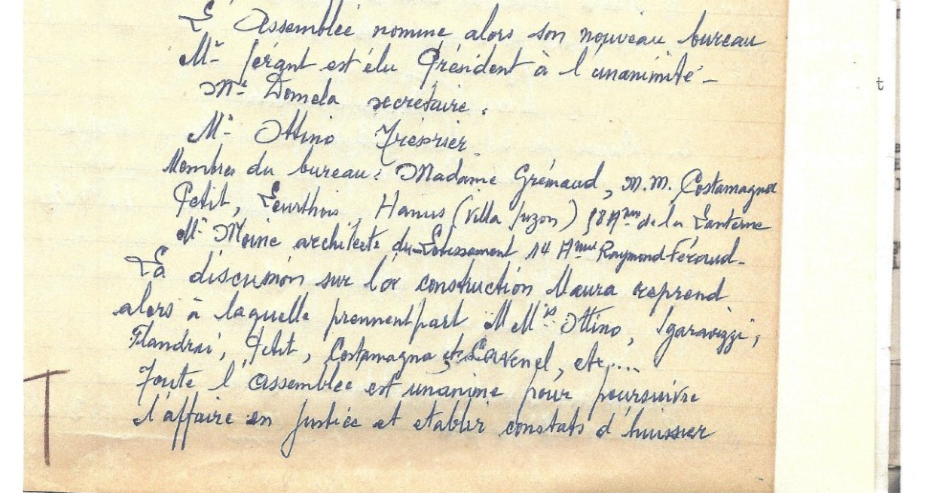 L'Assemblée nomme alors son nouveau bureau
Mr est élu Président à l'unanimité -
Mr Domela secrétaire.
Mr Ottino Trésorier.
Membres du bureau : Madame Grémaud, M.M. Costamagna
Petit, Leurthois, Hamus (Villa Suzon) 18 Anue de la Lanterne
Mr Moine architecte du Lotissement 14 Anue Raymond Féraud -
La discussion sur la construction Maura reprend
alors à laquelle prennent part M M rs Ottino, Sgaravizzi,
Flandrai, Petit, Costamagna et Lavenel, etc....
Toute l'assemblée est unanime pour poursuivre
l'affaire en Justice et etablir constats d'huissier
t